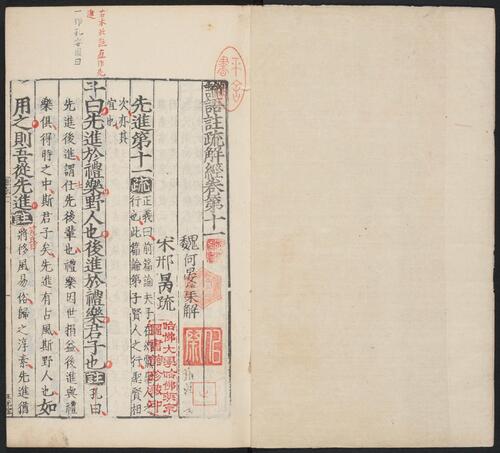 論語註疏解經卷第十一
魏何晏集解
宋邢昺疏
先進第十一疏正義曰前篇論夫子在
行也此篇論弟子賢人之行聖賢相
次亦其
宜也
子曰先進於禮樂野人也後進於禮樂君子也註孔曰
先進後進謂仕先後輩也禮樂因世損益後進與禮
樂俱得時之中斯君子矣先進有古風斯野人也如
用之則吾從先進註將移風易俗歸之淳素先進猶
一作孔安國曰
哈佛大學哈佛燕京
圖書館珍藏印